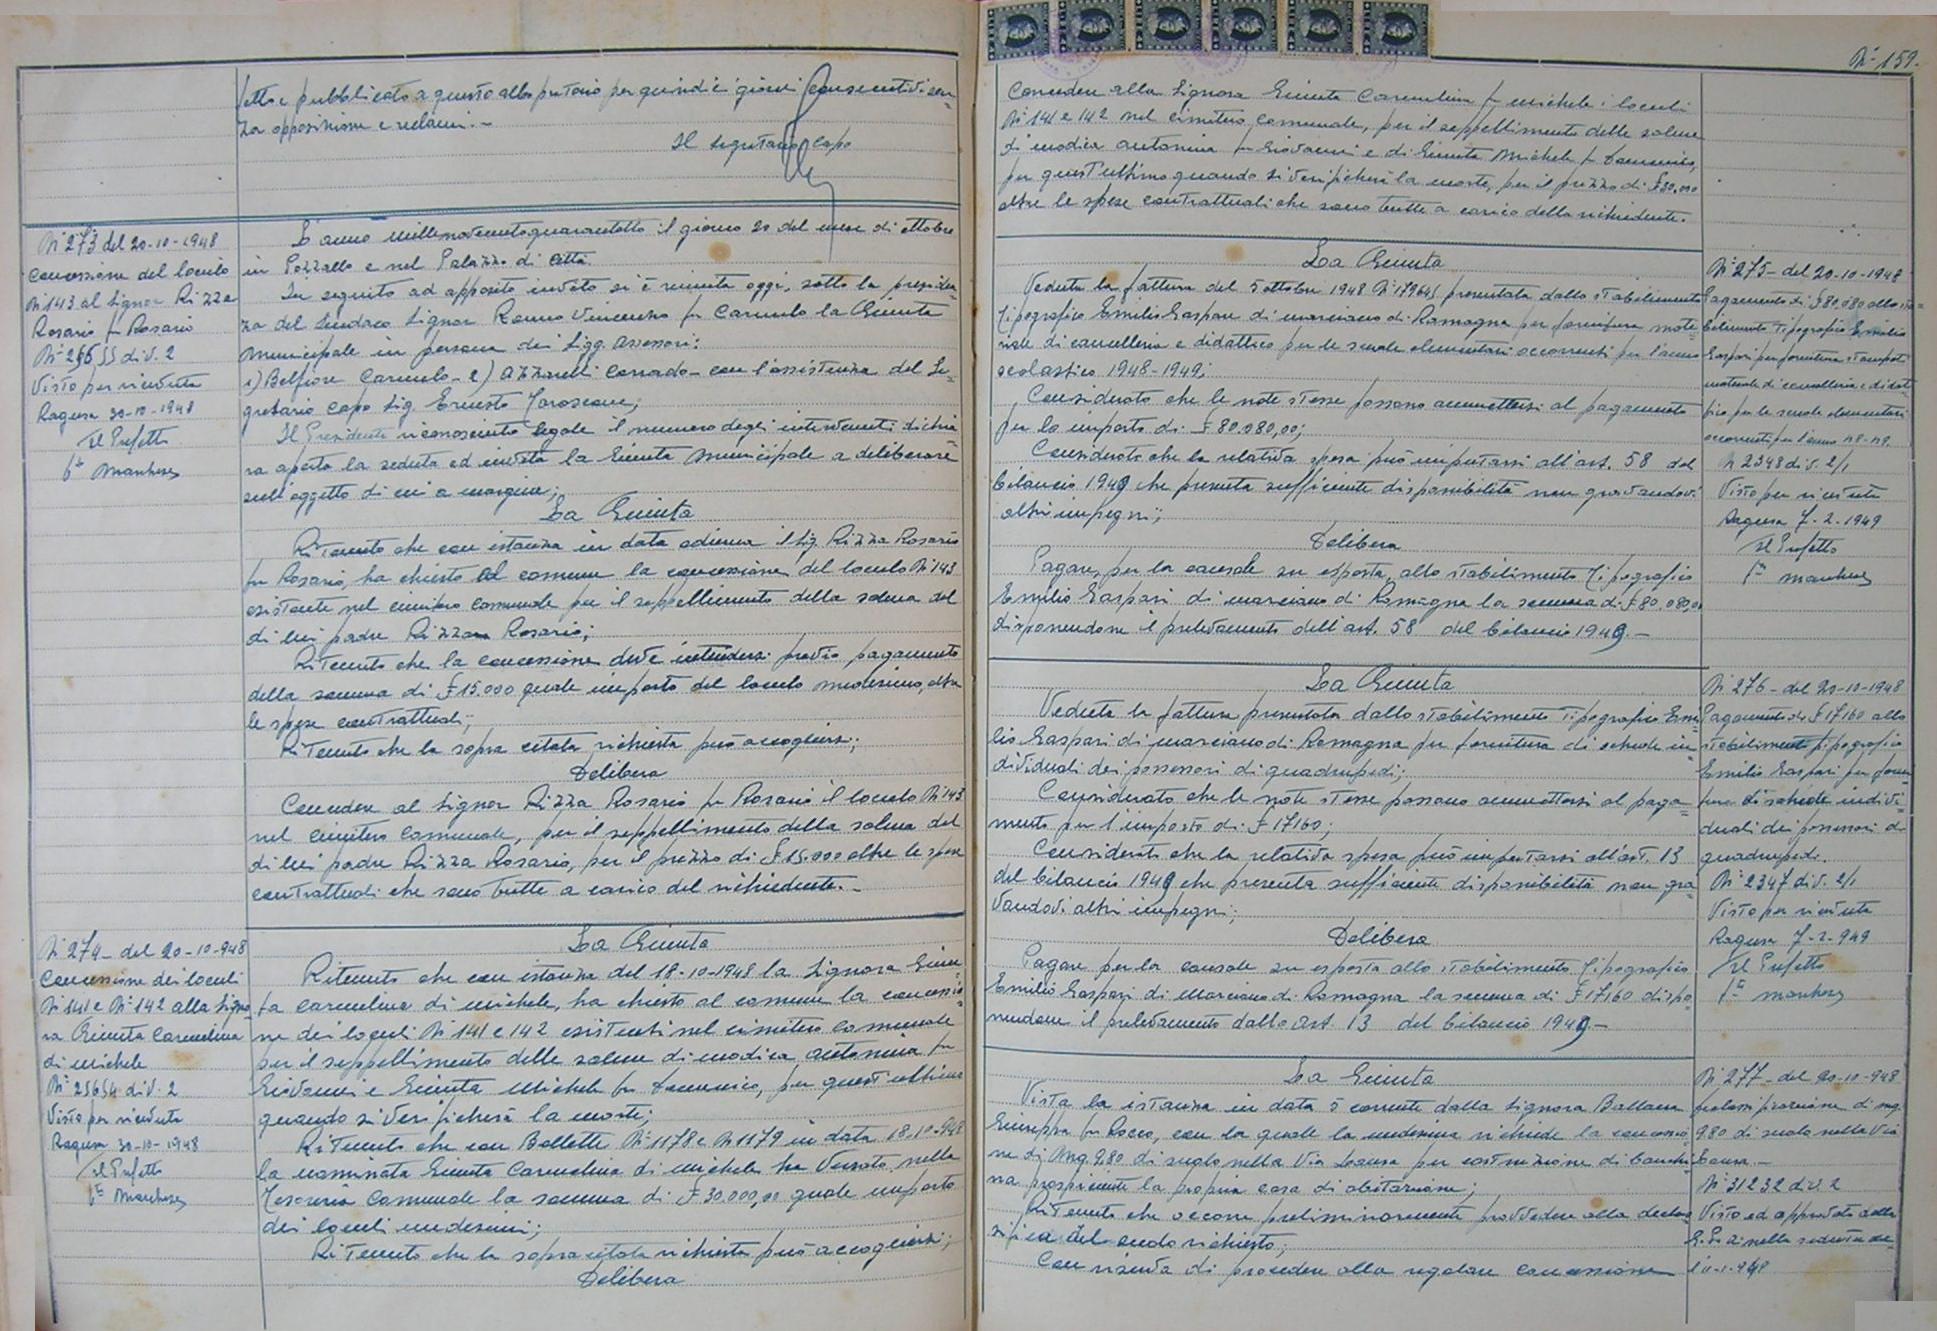 letto e pubblicato a questo albo pretorio per quindici giorni consecutivi sen=
za opposizione e reclami.-
Il Segretario Capo
N° 273 del 20-10-1948
Concessione del loculo
N° 143 al Signor Rizza
Rosario fu Rosario
div. 2
Visto per ricevuta
Ragusa 30-10-1948
Il Prefetto
L'anno millenovecentoquarantotto il giorno 20 del mese di ottobre
in Pozzallo e nel Palazzo di Città.
In seguito ad apposito invito si è riunita oggi, sotto la presiden=
za del Sindaco Signor Vincenzo fu Carmelo la Giunta
Municipale in persona dei Sigg. Assessori:
1) Belfiore Carmelo- 2) Azzarelli Corrado- con l'assistenza del Se=
gretario capo Sig. Ernesto
Il Presidente riconosciuto legale il numero degli intervenuti dichia
ra aperta la seduta ed invita la Giunta Municipale a deliberare
sull'oggetto di cui a margine;
La Giunta
Ritenuto che con istanza in data odierna il Sig. Rizza Rosario
fu Rosario, ha chiesto al comune la concessione del loculo N° 143
esistente nel cimitero comunale per il seppellimento della salma del
di lui padre Rizza Rosario;
Ritenuto che la concessione deve intendersi previo pagamento
della somma di £ 15.000 quale importo del loculo medesimo, oltre
le spese contrattuali;
Ritenuto che la sopra citata richiesta può accogliersi;
Delibera
Concedere al Signor Rizza Rosario fu Rosario il loculo N° 143
nel cimitero comunale, per il seppellimento della salma del
di lui padre Rizza Rosario, per il prezzo di £ 15.000 oltre le spese
contrattuali che sono tutte a carico del richiedente.-
N° 274- del 20-10-948
Concessione dei loculi
N° 141 e N° 142 alla Signo
ra Giunta Carmelina
di Michele
N° 25654 div. 2
Visto per ricevuta
Ragusa 30-10-1948
Il Prefetto
La Giunta
Ritenuto che con istanza del 18-10-1948 la Signora Giun=
ta Carmelina di Michele, ha chiesto al comune la concessio=
ne dei loculi N° 141 e 142 esistenti nel cimitero comunale
per il seppellimento delle salme di Modica Antonina fu
Giovanni e Giunta Michele fu Domenico, per quest'ultimo
quando si verificherà la morte;
Ritenuto che con Bollette N° 1178 e N° 1179 in data 18-10-948
la nominata Giunta Carmelina di Michele ha versato nella
Tesoreria Comunale la somma di £ 30.000,00 quale importo
dei loculi medesimi;
Ritenuto che la sopra citata richiesta può accogliersi;
Delibera
N° 159.
Concedere alla Signora Giunta Carmelina fu Michele i loculi
N° 141 e 142 nel cimitero comunale, per il seppellimento delle salme
di Modica Antonina fu Giovanni e di Giunta Michele fu Domenico,
per quest'ultimo quando si verificherà la morte, per il prezzo di £ 30.000
oltre le spese contrattuali che sono tutte a carico della richiedente.
La Giunta
Veduta la fattura del 5 ottobre 1948 presentata dallo stabilimento
Tipografico Emilio Gaspari di Marciano di Romagna per fornitura mate
riale di cancelleria e didattico per le scuole elementari occorrenti per l'anno
scolastico 1948-1949;
Considerato che le note stesse possono ammettersi al pagamento
per lo importo di £ 80.080,00;
Considerato che la relativa spesa può imputarsi all'art. 58 del
bilancio 1949 che presenta sufficiente disponibilità non gravandovi
altri impegni;
Delibera
Pagare, per la causale su esposta allo stabilimento Tipografico
Emilio Gaspari di Marciano di Romagna la somma di £ 80.080,00
disponendone il prelevamento dell'art. 58 del bilancio 1949.-
N° 275- del 20-10-1948
Pagamento di £ 80.080 allo sta=
bilimento Tipografico Emilio
Gaspari per fornitura stampati
materiale di cancelleria e didat
tico per le scuole elementari
occorrenti per l'anno 48-49.
N 2348 div. 2/1
Visto per ricevuta
Ragusa 7-2-1949
Il Prefetto
La Giunta
Veduta la fattura presentata dallo stabilimento Tipografico Emi
lio Gaspari di Marciano di Romagna per fornitura di schede in=
dividuali dei possessori di quadrupedi;
Considerato che le note stesse possono ammettersi al paga=
mento per l'importo di £ 17160;
Considerato che la relativa spesa può imputarsi all'art. 13
del bilancio 1949 che presenta sufficiente disponibilità non gra
vandovi altri impegni;
Delibera
Pagare per la causale su esposta allo stabilimento Tipografico
Emilio Gaspari di Marciano di Romagna la somma di £ 17160 dispo
nendone il prelevamento dallo art. 13 del bilancio 1949-
N° 276- del 20-10-1948
Pagamento di £ 17160 allo
stabilimento tipografico
Emilio Gaspari per forni=
tura di schede indivi=
duali dei possessori di
quadrupedi.
N° 2347 div. 2/1
Visto per ricevuta
Ragusa 7-2-949
Il Prefetto
La Giunta
Vista la istanza in data 5 corrente dalla Signora
Giuseppa fu Rocco, con la quale la medesima richiede la concessio
ne di mq. 9,80 di suolo nella Via per costruzione di banchi=
na prospiciente la propria casa di abitazione;
Ritenuto che occorre preliminarmente provvedere alla declas
sifica del suolo richiesto;
Con riserva di procedere alla regolare concessione
N° 277- del 20-10-948
di mq.
9.80 di suolo nella Via
N° 31232 div. 2
Visto ed approvato dalla
G.P.A. nella seduta de=